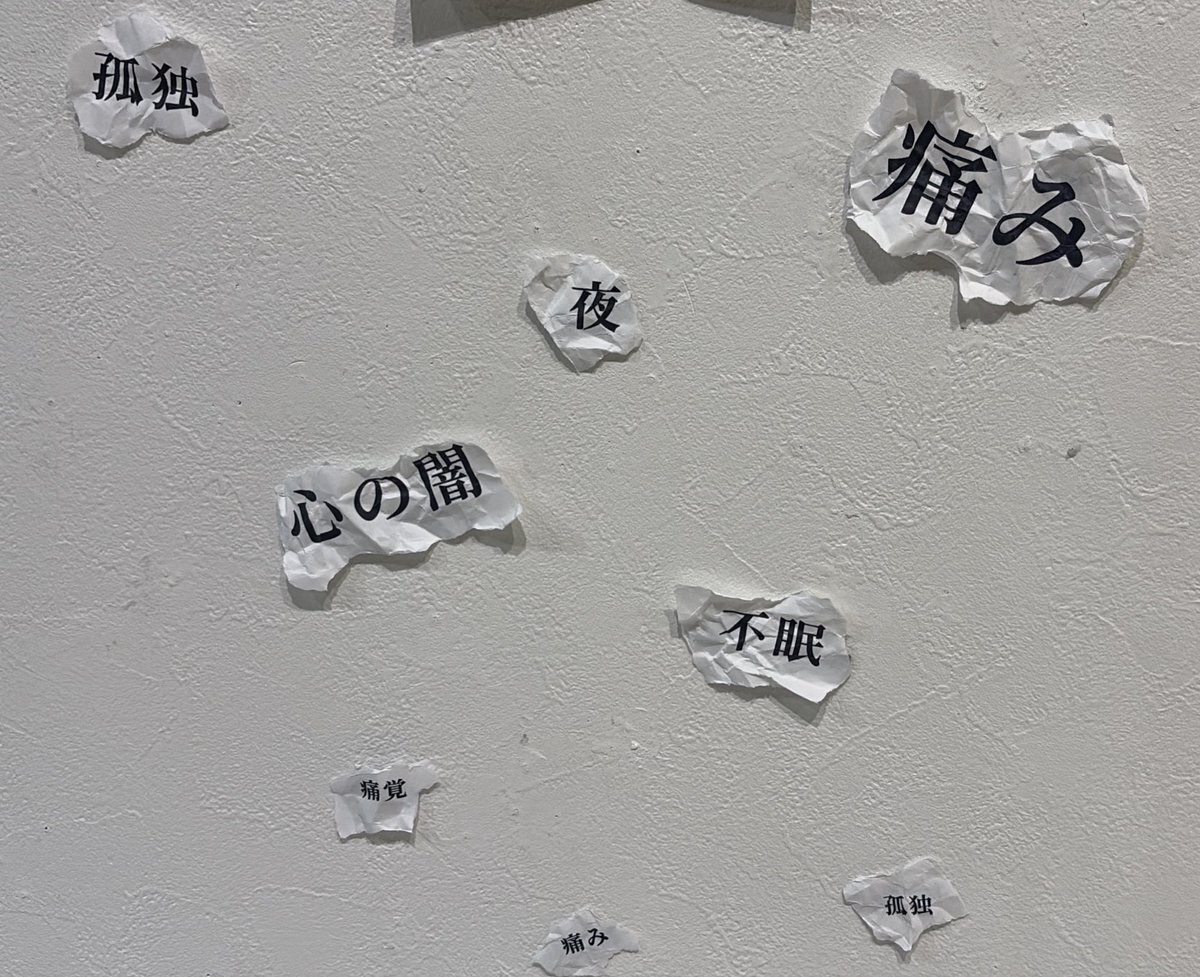 孤独
痛み
夜
心の闇
不眠
痛覚
孤独
痛み